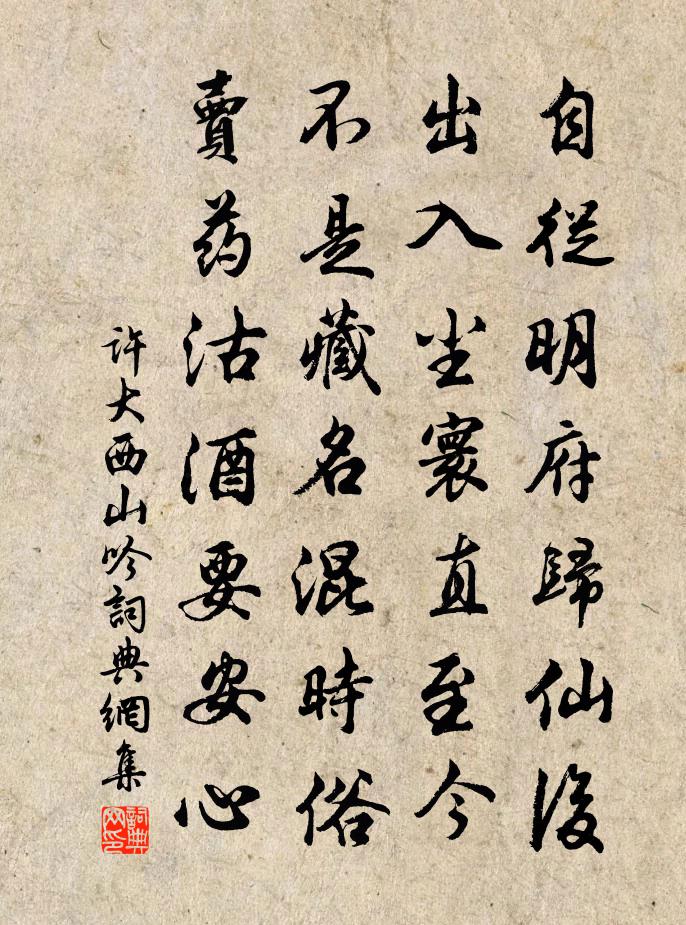 自從明府歸仙後
出入尘寰直至今
不是藏名混時俗
賣药沽酒要安心
許大西山吟詞典網集
詞典
网印